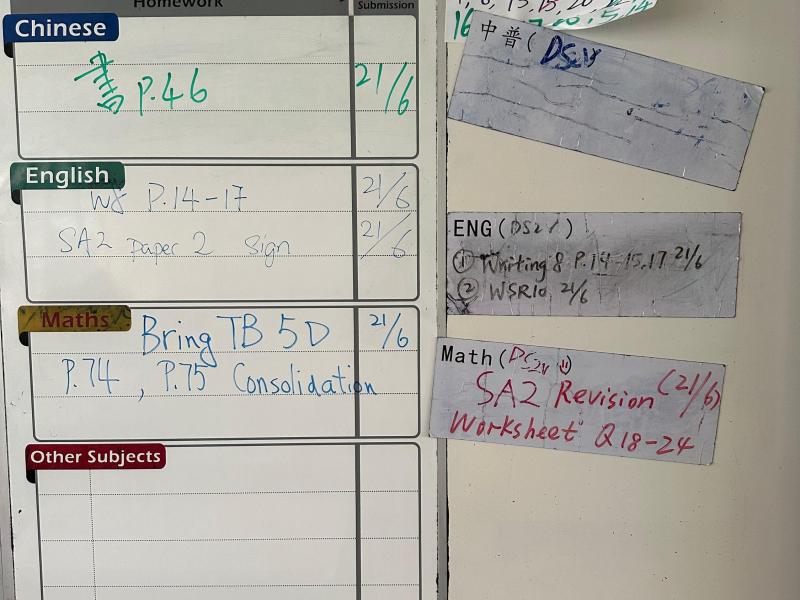 Homework
Submission
Chinese
書 P.46
21/6
English
W8 P.14-17
21/6
SA2 paper 2 Sign
21/6
Maths
Bring TB 5D
21/6
P.74, P.75 Consolidation
Other Subjects
16
中普(
ENG(DS2
① Writing 8 P.14-15,17 21/6
② WSR10 21/6
Math(
SA2 Revision (21/6)
Worksheet Q18-24